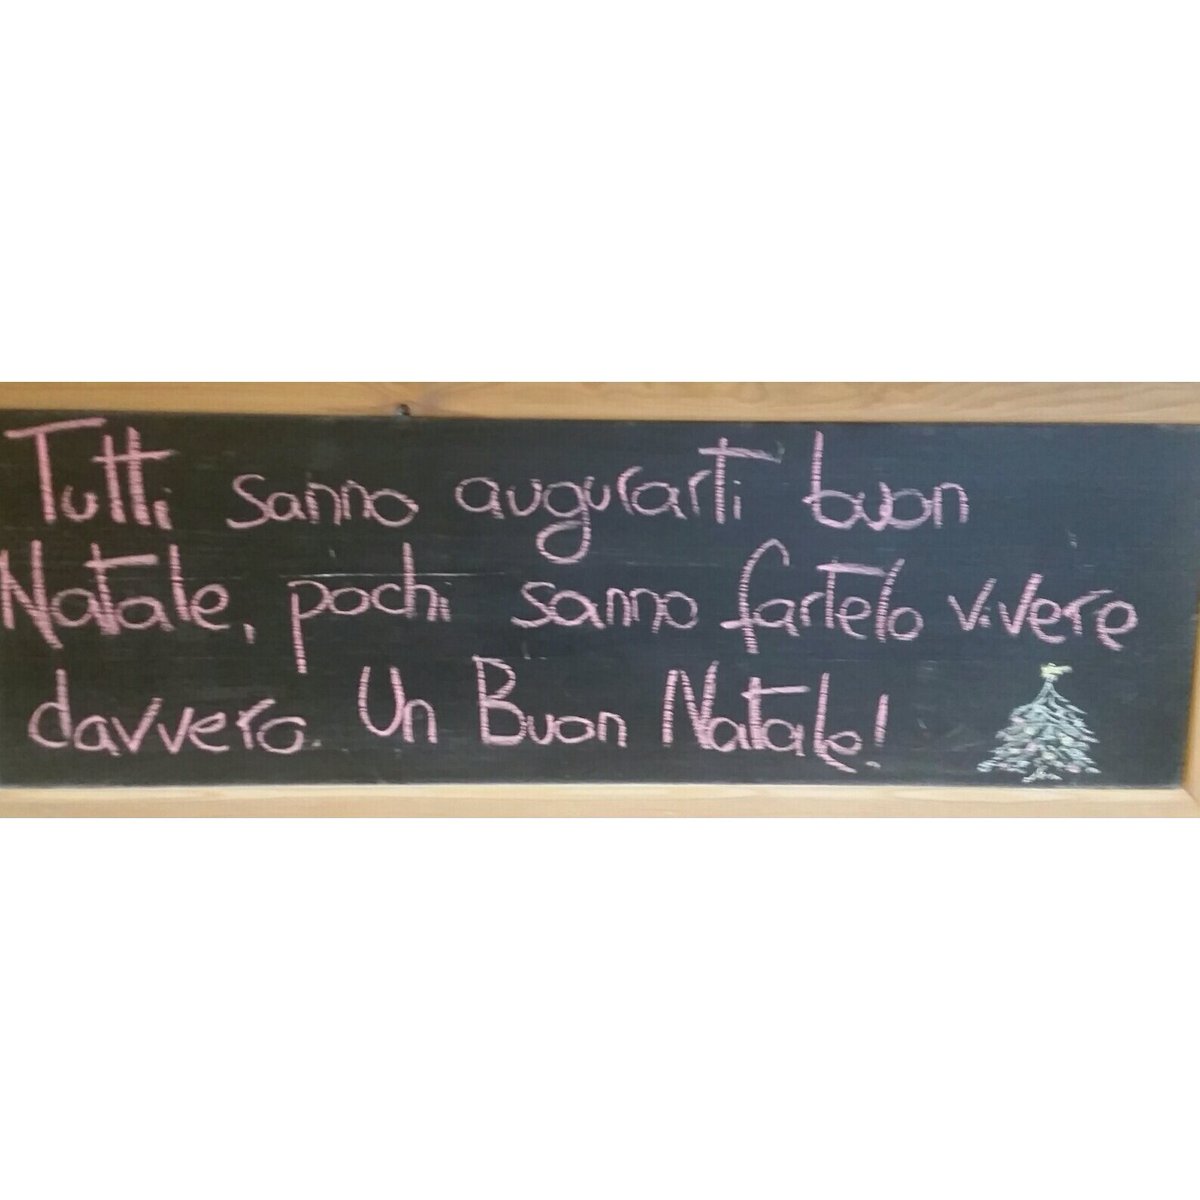 Tutti sanno augurarti buon
Natale, pochi sanno fartelo vivere
davvero. Un Buon Natale!